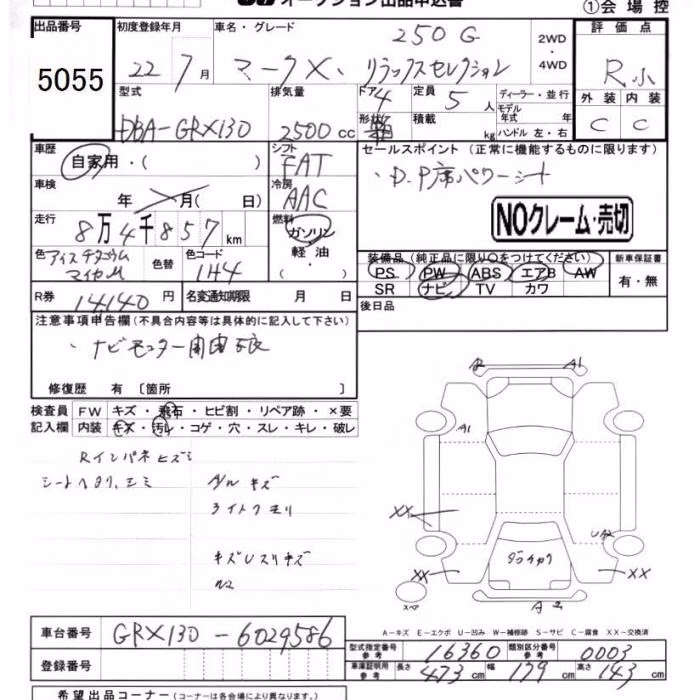 オークション出品申込書
①会場控
出品番号
5055
初度登録年月
22年7月
車名・グレード
250G
マークX、リラックスセレクション
2WD
・
4WD
評価点
R小
外装 内装
C C
型式
DBA-GRX130
排気量
2500cc
ドア 4
形状
定員 5人
積載 kg
ディーラー・並行
モデル年式 年
ハンドル 左・右
車歴
自家用・( )
シフト
FAT
車検
年 月( 日)
冷房
AAC
走行
8万4千857km
燃料
ガソリン
軽油
色
マイカM
色替
色コード
1H4
R券
14140円
名変通知期限 月 日
セールスポイント(正常に機能するものに限ります)
・D.P席パワーシート
NOクレーム・売切
装備品(純正品に限り○をつけてください)
PS PW ABS エアB AW
SR ナビ TV カワ
新車保証書
有・無
後日品
注意事項申告欄(不具合内容等は具体的に記入して下さい)
・ナビモニター開閉不良
修復歴 有〔箇所 〕
検査員記入欄
FW キズ・飛石・ヒビ割・リペア跡・×要
内装 キズ・汚レ・コゲ・穴・スレ・キレ・破レ
Rインパネヒズミ
シートヘタリ、シミ
ハンドルキズ
ライトクモリ
A1
A1
XX
UA2
XX
XX
A2
スペア
A-キズ E-エクボ U-凹み W-補修跡 S-サビ C-腐食 XX-交換済
車台番号
GRX130-6029586
登録番号
型式指定番号 参考 16360 類別区分番号 参考 0003
車庫証明用 参考 長さ 473cm 幅 179cm 高さ 143cm
希望出品コーナー(コーナーは各会場により異なります。)